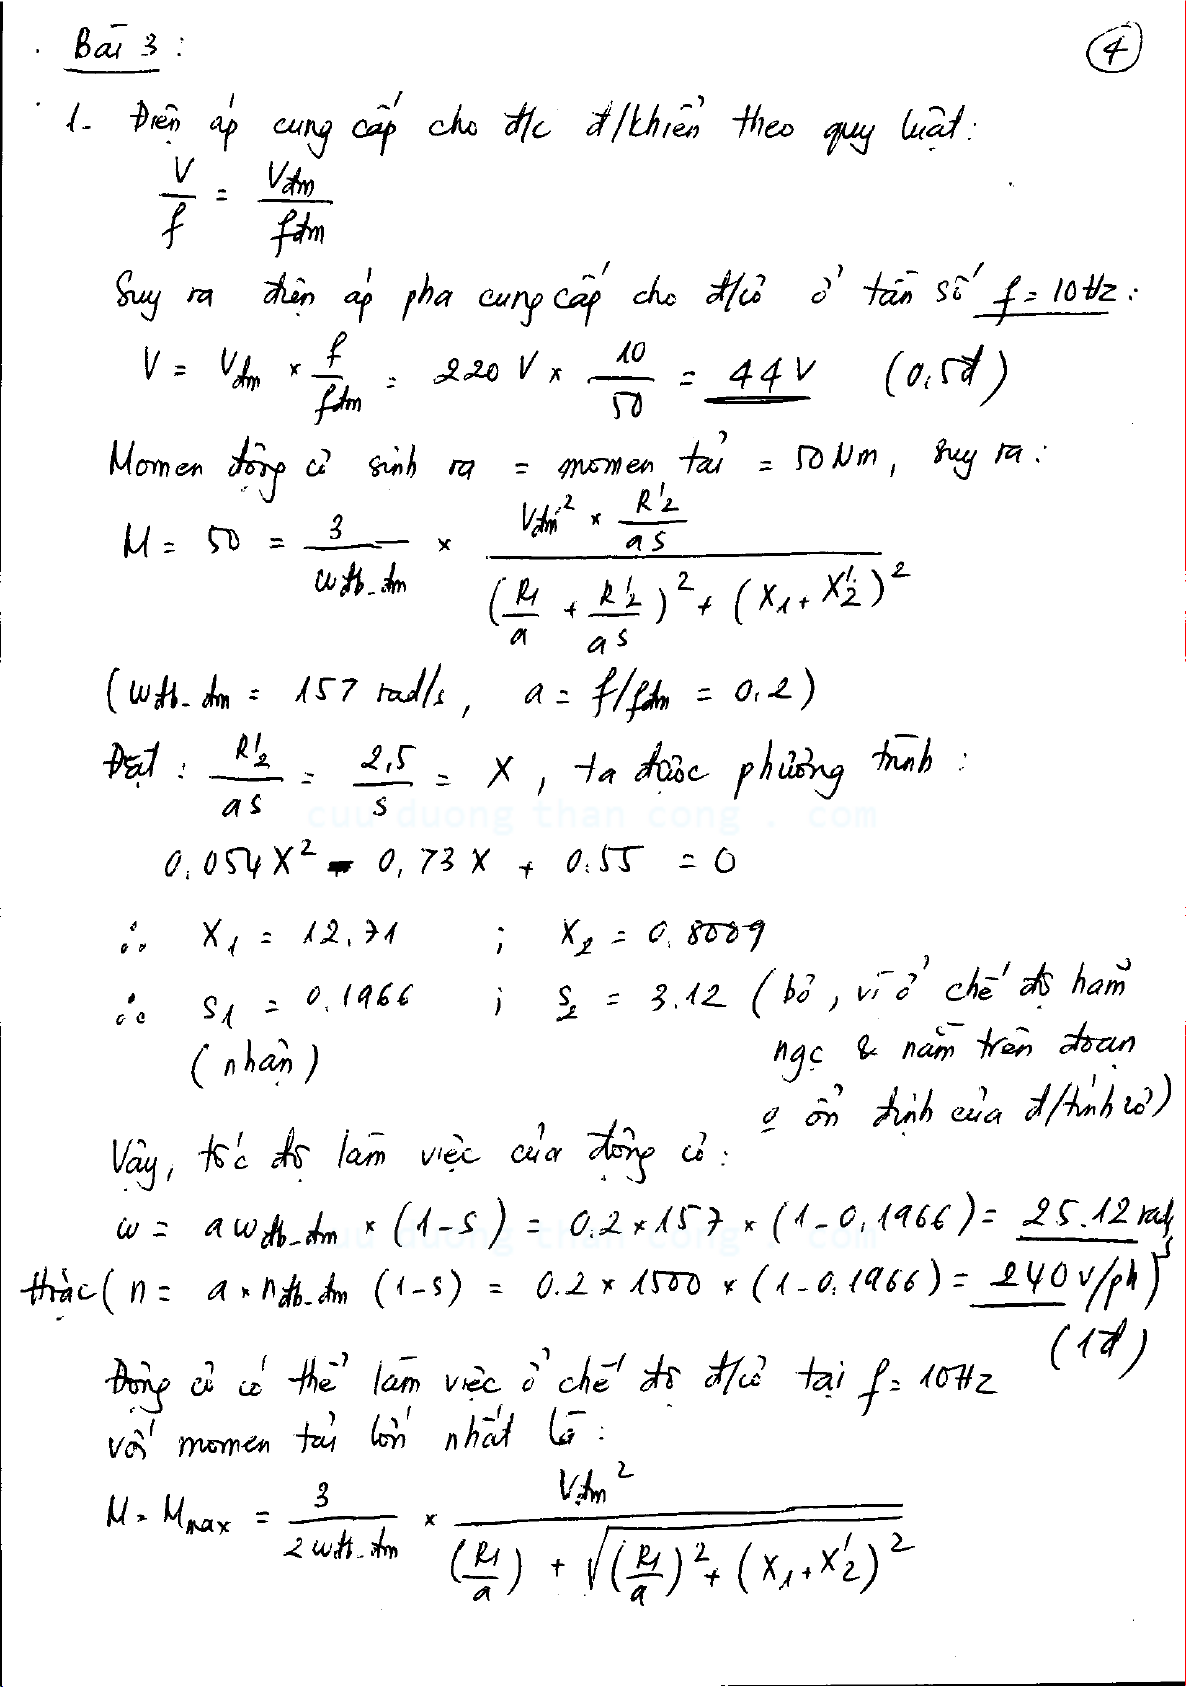 Bài 3 :
4
1- Điện áp cung cấp cho đ/c đ/khiển theo quy luật:
V/f = Vđm/fđm
Suy ra điện áp pha cung cấp cho đ/cơ ở tần số f = 10Hz :
V = Vđm × f/fđm = 220 V × 10/50 = 44V (0,5đ)
Momen động cơ sinh ra = momen tải = 50Nm, suy ra :
M = 50 = 3/ωđb-đm × (Vđm² × R'2/as) / ((R1/a + R'2/as)² + (X1 + X'2)²)
(ωđb-đm = 157 rad/s, a = f/fđm = 0.2)
Đặt : R'2/as = 2,5/s = X, ta được phương trình :
cuu duong than cong . com
0.054X² - 0,73X + 0.55 = 0
∴ X1 = 12.71 ; X2 = 0.8009
∴ S1 = 0.1966 ; S2 = 3.12 (bỏ, vì ở chế độ hãm
(nhận) ngc & nằm trên đoạn
o ổn định của đ/tính cơ)
Vậy, tốc độ làm việc của động cơ :
ω = aωđb-đm × (1-s) = 0.2×157 × (1-0,1966) = 25.12 rad/s
cuu duong than cong . com
hoặc (n = a × nđb-đm (1-s) = 0.2 × 1500 × (1-0.1966) = 240 v/ph)
(1đ)
Động cơ có thể làm việc ở chế độ đ/cơ tại f = 10Hz
với momen tải lớn nhất là :
M = Mmax = 3/2ωđb-đm × Vđm² / ((R1/a) + √((R1/a)² + (X1+X'2)²))